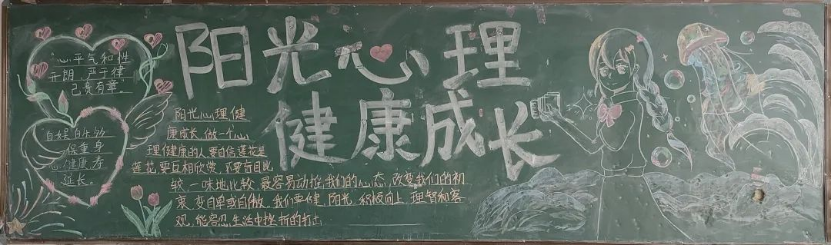 阳光心理
健康成长
心平气和性
开朗，严于律
己克有章。
自娱自乐沙
健康
成长。
阳光心理健
康成长，做一个心
理健康的人要自信
要互相欣赏，不要盲目比
较，一味地比较，最容易动摇我们的心态，改变我们的初
衷，变自卑或自傲，我们要健、阳光、积极向上、理智和客
观，能容忍生活中挫折的打击